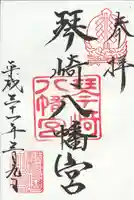 奉拝
琴崎八幡宮
琴崎
八幡宮
平成三十一年三月九日